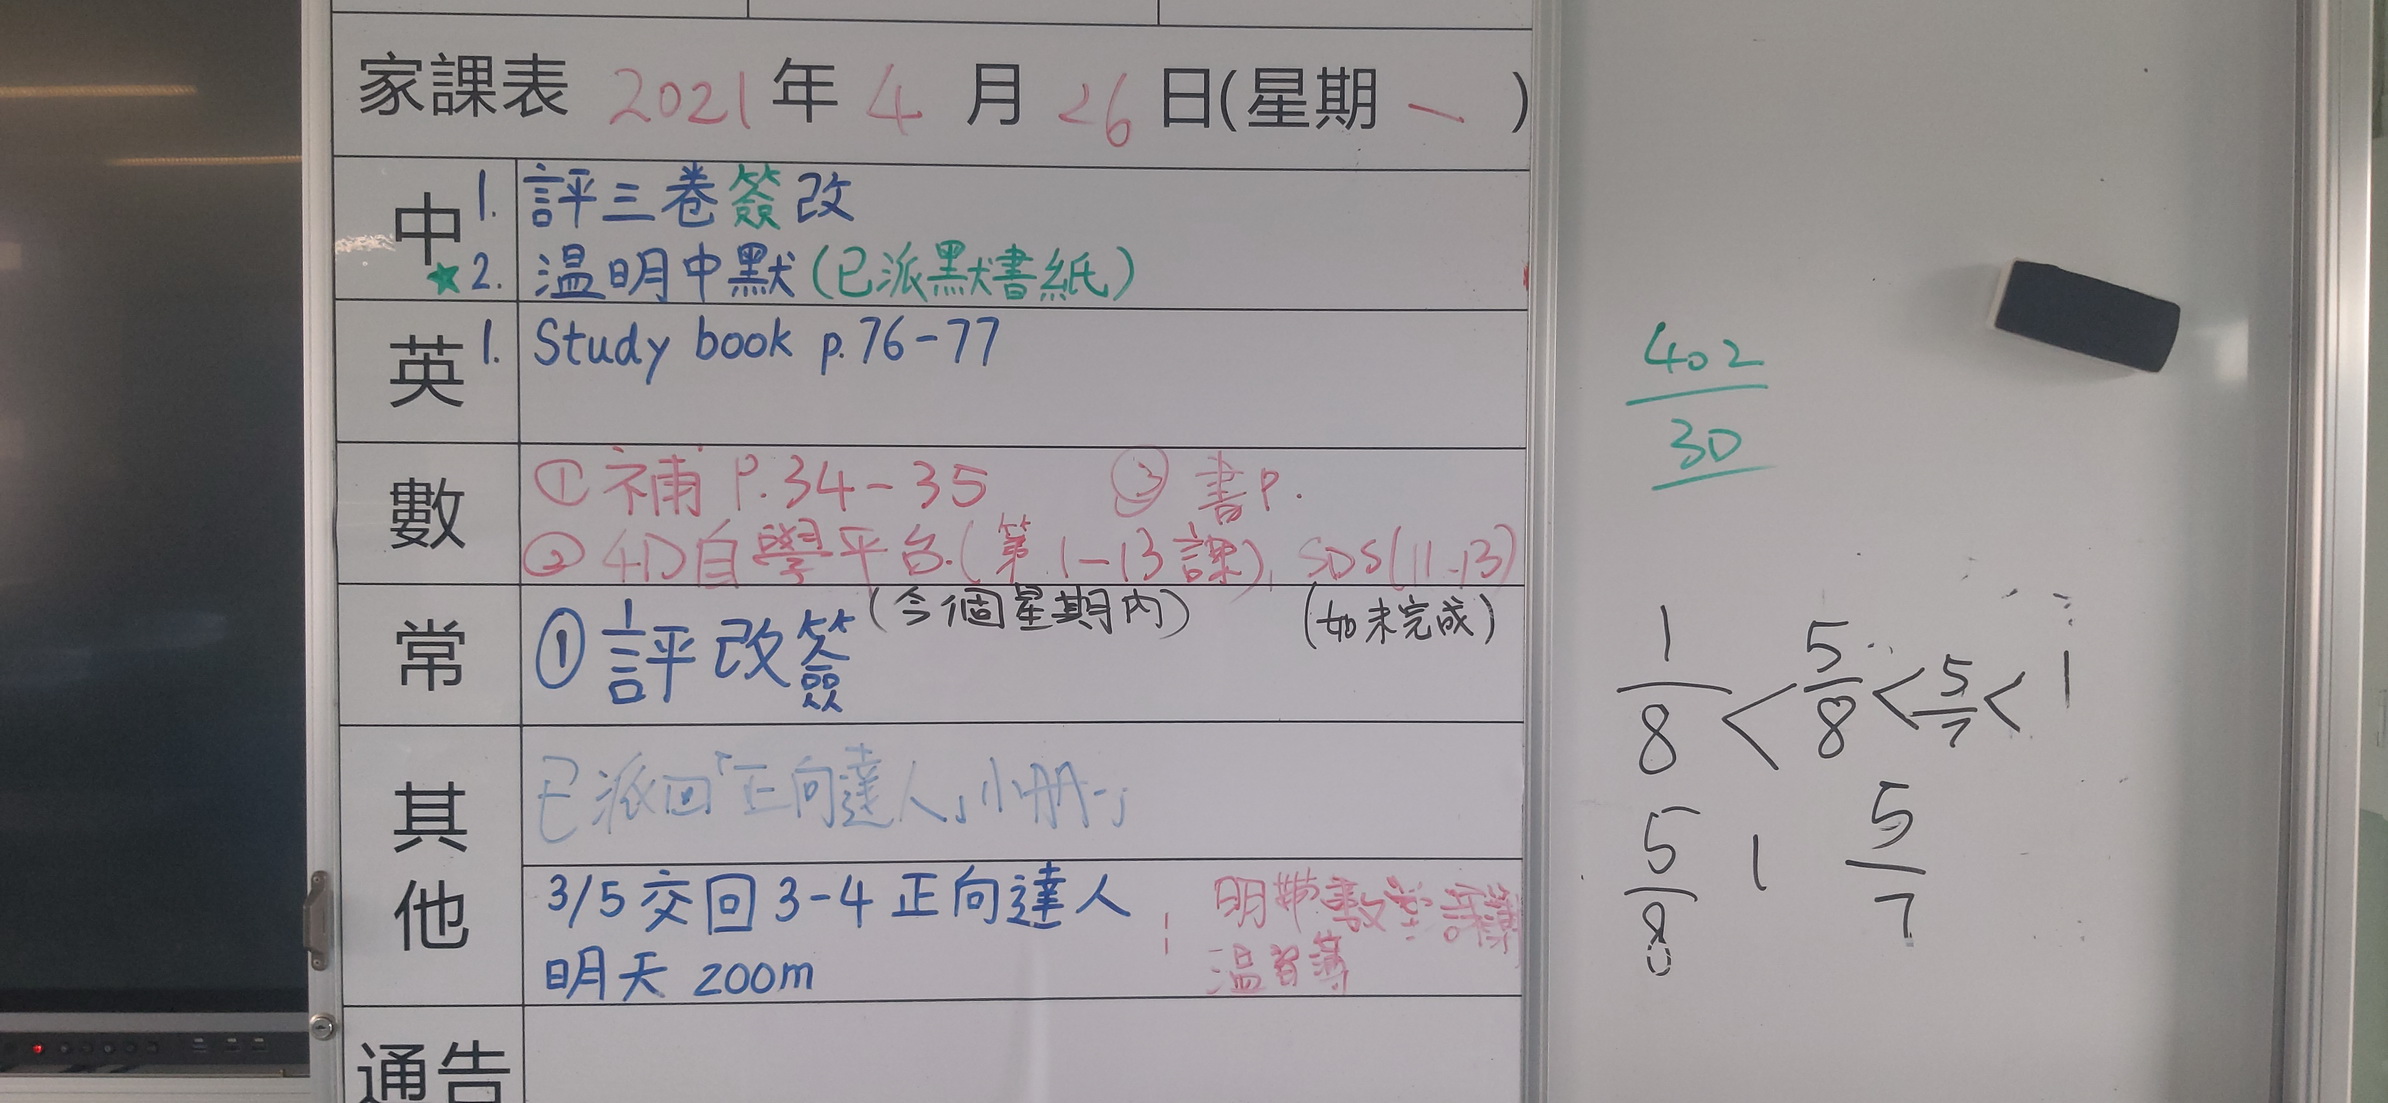 家課表 2021 年 4 月 26 日(星期 一 )
中 1. 評三卷簽改
★2. 溫明中默(已派默書紙)
英 1. Study book p.76-77
數 ① 補 P.34-35 ③ 書P.
② 4D自學平台.(第1-13課), SDS(11-13)
(今個星期內) (如未完成)
常 ① 評改簽
其他 已派回「正向達人」小冊子
3/5 交回 3-4 正向達人
明天 200m
明帶數堂課簿
溫習簿
通告
402
30
1/8 < 5/8 < 5/7 < 1
5/8 1 5/7